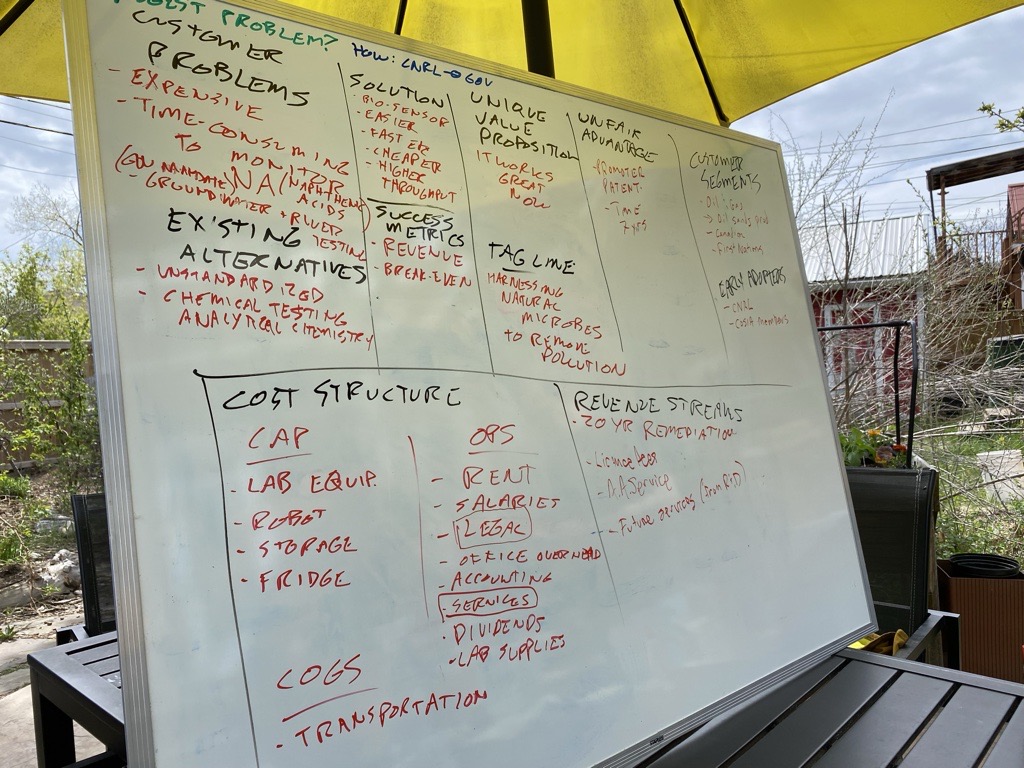 PROBLEM?
HOW: CNRL→GOV
CUSTOMER
PROBLEMS
- EXPENSIVE
- TIME-CONSUMING
TO MONITOR
(GOV MANDATE) NA (NAPHTHENIC
ACIDS)
- GROUNDWATER + RIVER
TESTING
EXISTING
ALTERNATIVES
- UNSTANDARDIZED
- CHEMICAL TESTING
ANALYTICAL CHEMISTRY
SOLUTION
BIO-SENSOR
- EASIER
- FASTER
- CHEAPER
- HIGHER
THROUGHPUT
SUCCESS
METRICS
- REVENUE
- BREAK-EVEN
UNIQUE
VALUE
PROPOSITION
IT WORKS
GREAT
NOW
TAGLINE
HARNESSING
NATURAL
MICROBES
TO REMOVE
POLLUTION
UNFAIR
ADVANTAGE
- PROMOTER
PATENT
- TIME
7 YRS
CUSTOMER
SEGMENTS
- Oil
→ Oil sands
- Canadian
- First Nations
EARLY ADOPTERS
- CNRL
- COSIA members
COST STRUCTURE
CAP
- LAB EQUIP
- ROBOT
- STORAGE
- FRIDGE
COGS
- TRANSPORTATION
OPS
- RENT
- SALARIES
- LEGAL
- OFFICE OVERHEAD
- ACCOUNTING
- SERVICES
- DIVIDENDS
- LAB SUPPLIES
REVENUE STREAMS
- 20 YR REMEDIATION
- License fees
- Service
- Future services (from R+D)